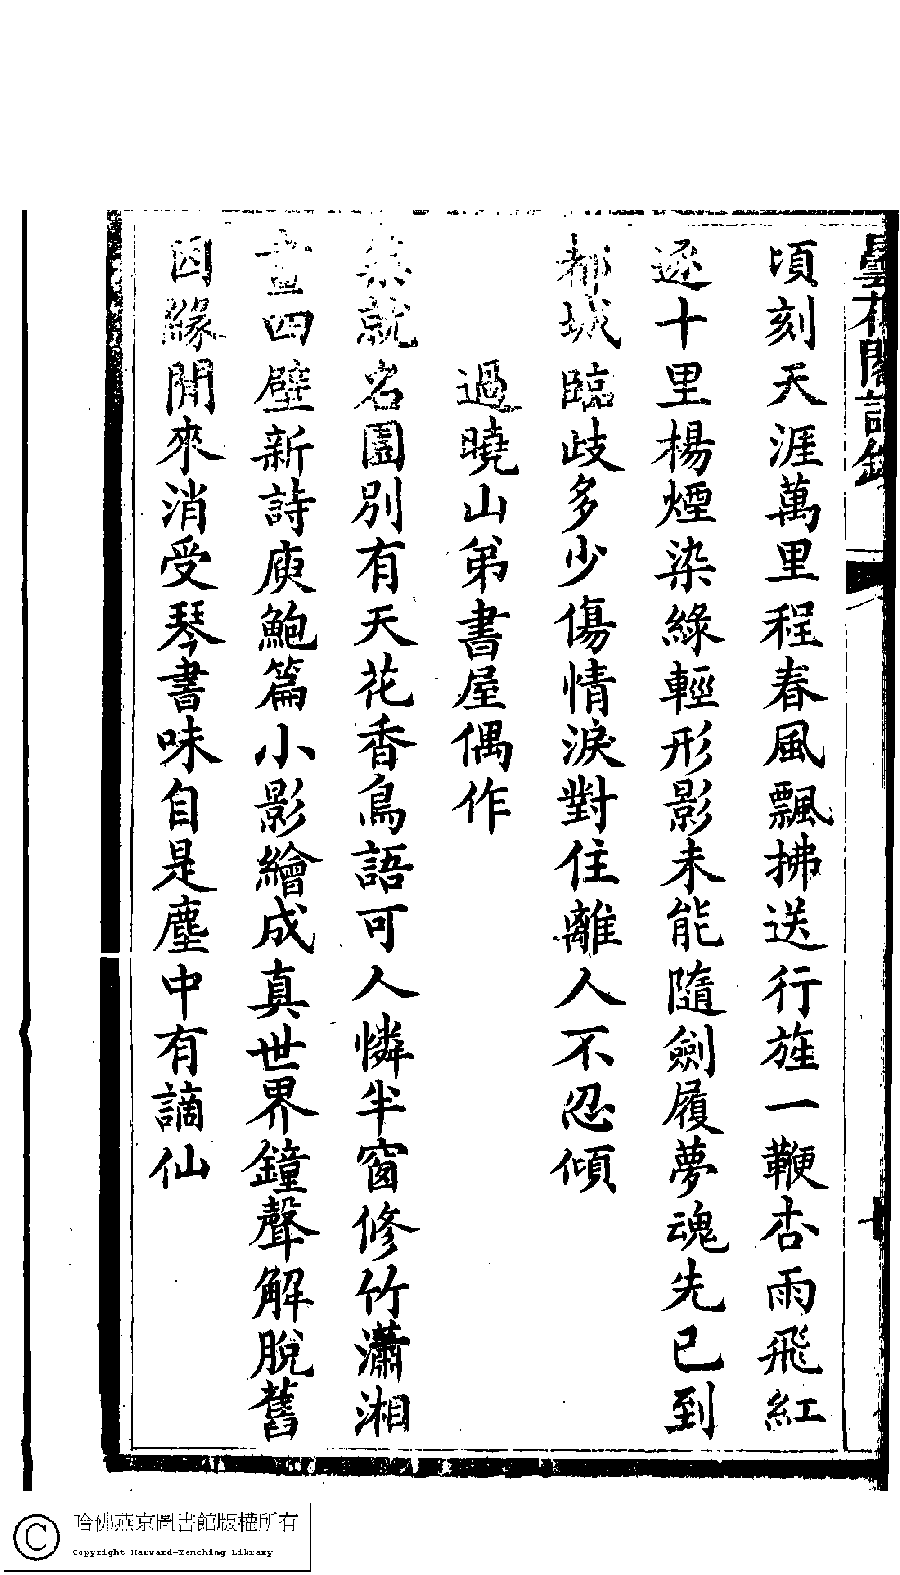 曇花閣詩鈔
頃刻天涯萬里程春風飄拂送行旌一鞭杏雨飛紅
遞十里楊煙染綠輕形影未能隨劍履夢魂先已到
都城臨歧多少傷情淚對住離人不忍傾
過曉山弟書屋偶作
築就名園別有天花香鳥語可人憐半窗修竹瀟湘
畫四壁新詩庾鮑篇小影繪成真世界鐘聲解脫舊
因緣閒來消受琴書味自是塵中有謫仙
十
哈佛燕京圖書館版權所有
Copyright Harvard-Yenching Library